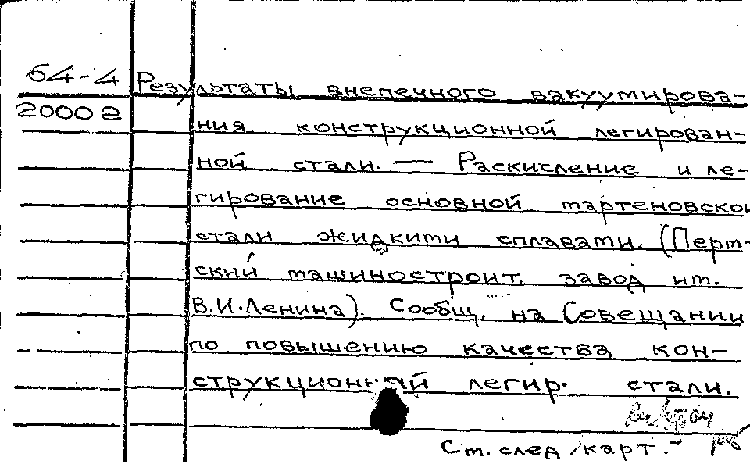 64-4 Результаты внепечного вакуумирова-
2000 а
ния конструкционной легирован-
ной стали. — Раскисление и ле-
гирование основной мартеновской
стали жидкими сплавами. (Перм-
ский машиностроит. завод им.
В.И.Ленина). Сообщ. на Совещании
по повышению качества кон-
струкционный легир. стали.
См. след. карт.